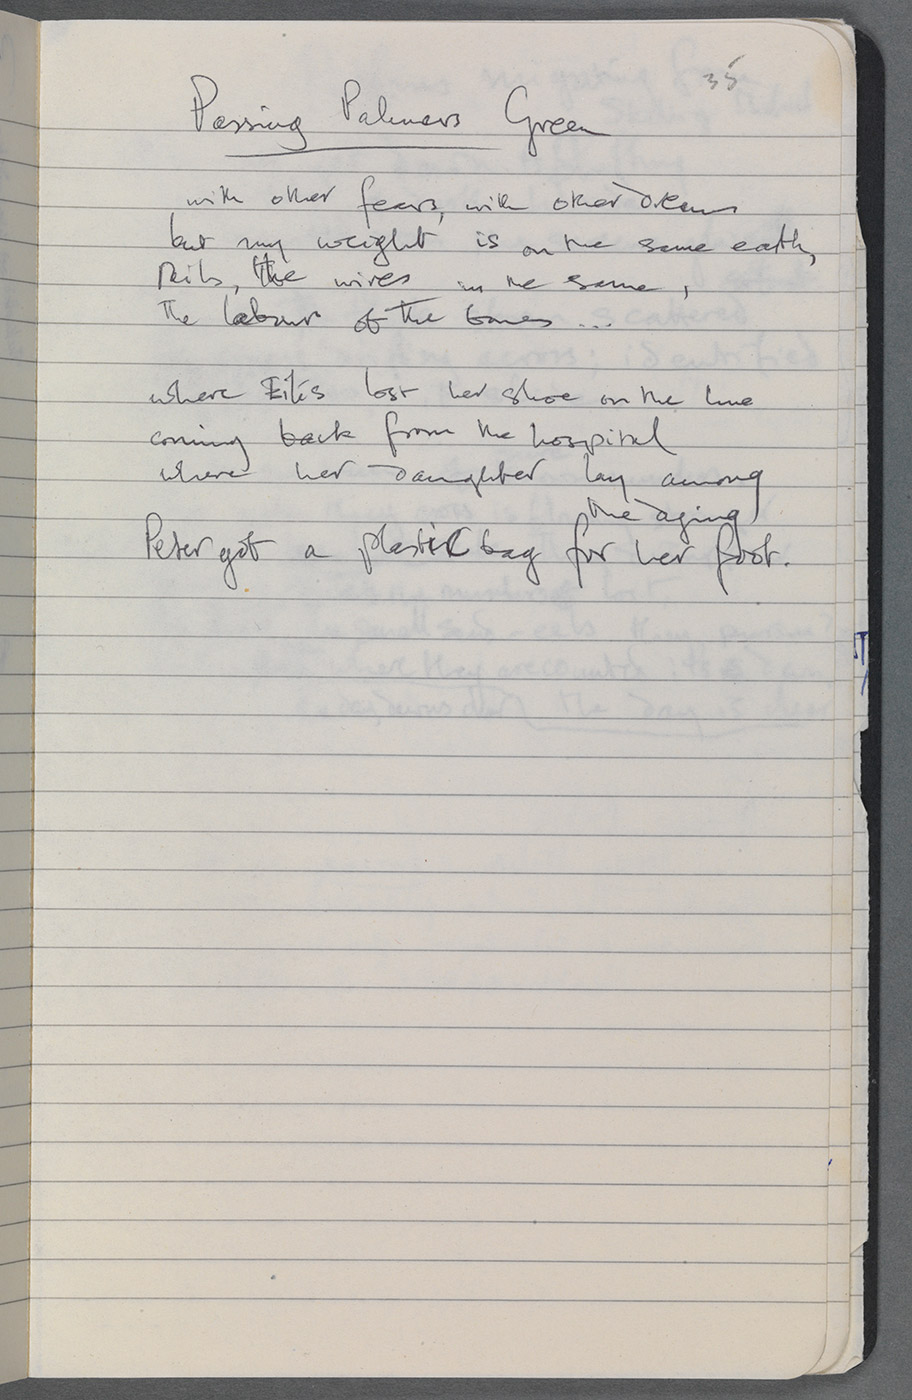 35
Passing Palmers Green
with other fears, with other dreams
but my weight is on the same earth,
rails, the wires in the same,
the labour of the bones ...
where Eili's lost her shoe on the line
coming back from the hospital
where her daughter lay among
the aging
Peter got a plastic bag for her foot.